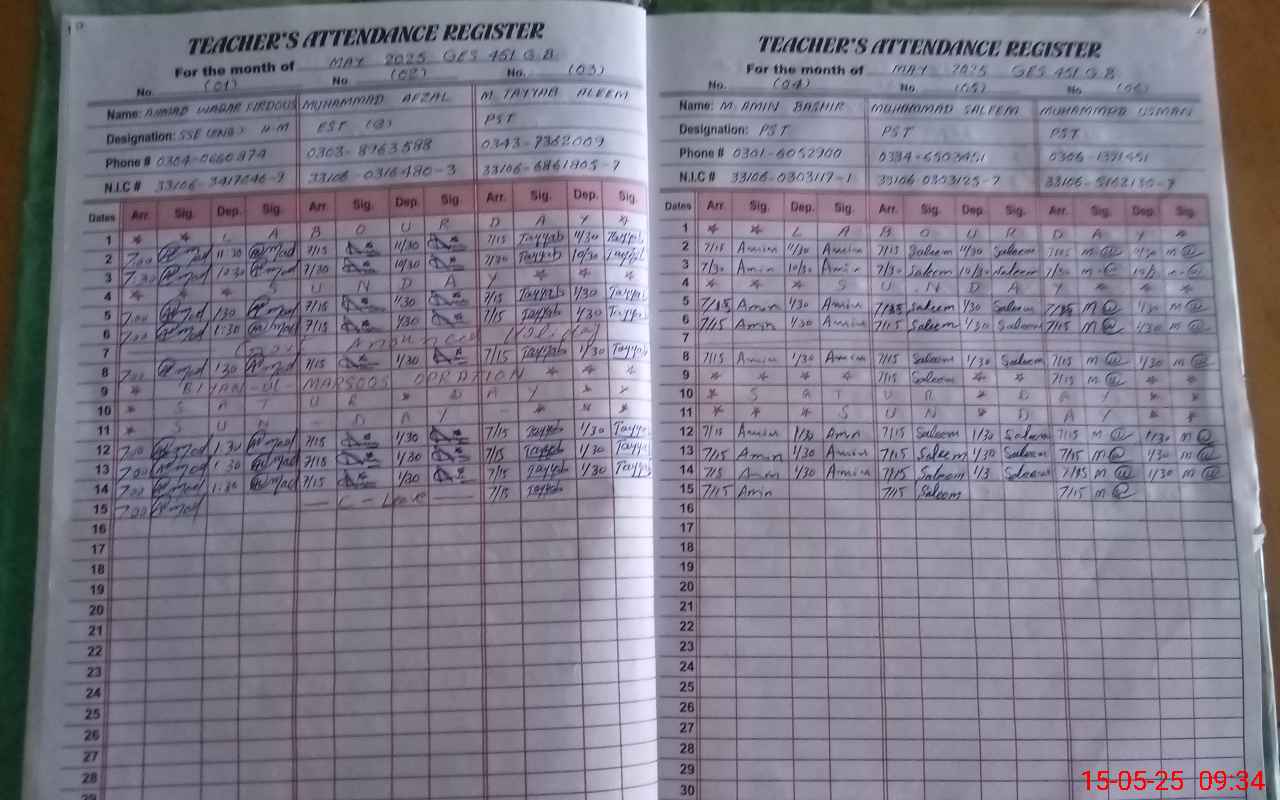 TEACHER'S ATTENDANCE REGISTER
For the month of MAY 2025 GES 451 G.B
No. (01) No (02) No. (03)
Name: AHMAD WAQAR FIRDOUS MUHAMMAD AFZAL M. TAYYAB ALEEM
Designation: SSE (ENG) H-M EST (G) PST
Phone # 0304-0660874 0303-8963588 0343-7362009
N.I.C # 33106-3417046-9 33106-0316480-3 33106-6861805-7
Dates Arr. Sig. Dep. Sig. Arr Sig. Dep. Sig. Arr. Sig. Dep. Sig.
1 * * L A B O U R D A Y *
2 7:00 11:30 7/15 11/30 7/15 Tayyab 11/30 Tayyab
3 7:30 10:30 7/30 10/30 7/30 Tayyab 10/30 Tayyab
4 * * * S U N D A Y * * *
5 7:00 1:30 7/15 1/30 7/15 Tayyab 1/30 Tayyab
6 7:00 1:30 7/15 1/30 7/15 Tayyab 1/30 Tayyab
7
8 7:00 1:30 7/15 1/30 7/15 Tayyab 1/30 Tayyab
9 * * * *
10 * S A T U R * D A Y * *
11 * S U N - D A Y - * * *
12 7:00 1:30 7/15 1/30 7/15 Tayyab 1/30 Tayyab
13 7:00 1:30 7/15 1/30 7/15 Tayyab 1/30 Tayyab
14 7:00 1:30 7/15 1/30 7/15 Tayyab 1/30 Tayyab
15 7:00 — C - Leave — 7/15 Tayyab
16
17
18
19
20
21
22
23
24
25
26
27
28
29
TEACHER'S ATTENDANCE REGISTER
For the month of MAY 2025 GES 451 G.B
No. (04) No. (05) No (06)
Name: M. AMIN BASHIR MUHAMMAD SALEEM MUHAMMAD USMAN
Designation: PST PST PST
Phone # 0301-6052900 0334-6503451 0306-1391451
N.I.C # 33106-0303117-1 33106-0303125-7 33106-5162130-7
Dates Arr. Sig. Dep. Sig. Arr. Sig. Dep. Sig. Arr. Sig. Dep. Sig.
1 * * L A B O U R D A Y *
2 7/15 Amin 11/30 Amin 7/15 Saleem 11/30 Saleem 7/15 11/30
3 7/30 Amin 10/30 Amin 7/30 Saleem 10/30 Saleem 7/30
4 * * * S U N D A Y * * *
5 7/15 Amin 1/30 Amin 7/15 Saleem 1/30 Saleem 7/15 1/30
6 7/15 Amin 1/30 Amin 7/15 Saleem 1/30 Saleem 7/15 1/30
7
8 7/15 Amin 1/30 Amin 7/15 Saleem 1/30 Saleem 7/15 1/30
9 * * * * 7/15 Saleem * * 7/15 * *
10 * S A T U R * D A Y * *
11 * * * S U N * D A Y * *
12 7/15 Amin 1/30 Amin 7/15 Saleem 1/30 Saleem 7/15 1/30
13 7/15 Amin 1/30 Amin 7/15 Saleem 1/30 Saleem 7/15 1/30
14 7/15 Amin 1/30 Amin 7/15 Saleem 1/3 Saleem 7/15 1/30
15 7/15 Amin 7/15 Saleem 7/15
16
17
18
19
20
21
22
23
24
25
26
27
28
29
30
15-05-25 09:34